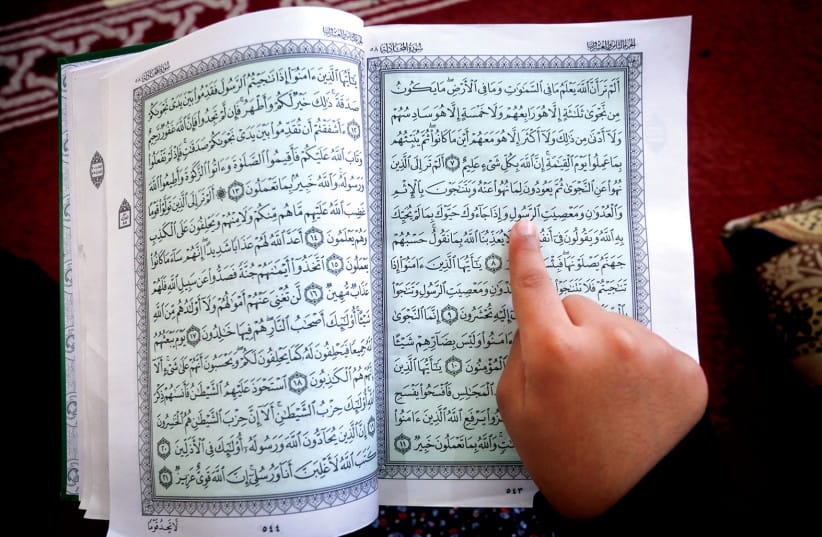 الجزء الثامن والعشرون
سُورَةُ المُجَادلة ٥٨
أَلَمْ تَرَ أَنَّ ٱللَّهَ يَعْلَمُ مَا فِى ٱلسَّمَٰوَٰتِ وَمَا فِى ٱلْأَرْضِ مَا يَكُونُ
مِن نَّجْوَىٰ ثَلَٰثَةٍ إِلَّا هُوَ رَابِعُهُمْ وَلَا خَمْسَةٍ إِلَّا هُوَ سَادِسُهُمْ
وَلَآ أَدْنَىٰ مِن ذَٰلِكَ وَلَآ أَكْثَرَ إِلَّا هُوَ مَعَهُمْ أَيْنَ مَا كَانُوا۟ ثُمَّ يُنَبِّئُهُم
بِمَا عَمِلُوا۟ يَوْمَ ٱلْقِيَٰمَةِ إِنَّ ٱللَّهَ بِكُلِّ شَىْءٍ عَلِيمٌ ٧ أَلَمْ تَرَ إِلَى ٱلَّذِينَ
نُهُوا۟ عَنِ ٱلنَّجْوَىٰ ثُمَّ يَعُودُونَ لِمَا نُهُوا۟ عَنْهُ وَيَتَنَٰجَوْنَ بِٱلْإِثْمِ
وَٱلْعُدْوَٰنِ وَمَعْصِيَتِ ٱلرَّسُولِ وَإِذَا جَآءُوكَ حَيَّوْكَ بِمَا لَمْ يُحَيِّكَ
بِهِ ٱللَّهُ وَيَقُولُونَ فِىٓ يُعَذِّبُنَا ٱللَّهُ بِمَا نَقُولُ حَسْبُهُمْ
جَهَنَّمُ يَصْلَوْنَهَا ٨ يَٰٓأَيُّهَا ٱلَّذِينَ ءَامَنُوٓا۟ إِذَا
تَنَٰجَيْتُمْ فَلَا تَتَنَٰجَوْا۟ وَمَعْصِيَتِ ٱلرَّسُولِ وَتَنَٰجَوْا۟
إِلَيْهِ تُحْشَرُونَ ٩ إِنَّمَا ٱلنَّجْوَىٰ
ءَامَنُوا۟ وَلَيْسَ بِضَآرِّهِمْ شَيْـًٔا
ٱلْمُؤْمِنُونَ ١٠ يَٰٓأَيُّهَا ٱلَّذِينَ
ٱلْمَجَٰلِسِ فَٱفْسَحُوا۟ يَفْسَحِ
يَرْفَعِ ٱللَّهُ ٱلَّذِينَ ءَامَنُوا۟
وَٱللَّهُ بِمَا تَعْمَلُونَ خَبِيرٌ ١١
٥٤٣
الجزء الثامن والعشرون
سُورَةُ المُجَادلة ٥٨
يَٰٓأَيُّهَا ٱلَّذِينَ ءَامَنُوٓا۟ إِذَا نَٰجَيْتُمُ ٱلرَّسُولَ فَقَدِّمُوا۟ بَيْنَ يَدَىْ نَجْوَىٰكُمْ
صَدَقَةً ذَٰلِكَ خَيْرٌ لَّكُمْ وَأَطْهَرُ فَإِن لَّمْ تَجِدُوا۟ فَإِنَّ ٱللَّهَ غَفُورٌ رَّحِيمٌ
١٢ ءَأَشْفَقْتُمْ أَن تُقَدِّمُوا۟ بَيْنَ يَدَىْ نَجْوَىٰكُمْ صَدَقَٰتٍ فَإِذْ لَمْ تَفْعَلُوا۟
وَتَابَ ٱللَّهُ عَلَيْكُمْ فَأَقِيمُوا۟ ٱلصَّلَوٰةَ وَءَاتُوا۟ ٱلزَّكَوٰةَ وَأَطِيعُوا۟ ٱللَّهَ
وَرَسُولَهُۥ وَٱللَّهُ خَبِيرٌۢ بِمَا تَعْمَلُونَ ١٣ أَلَمْ تَرَ إِلَى ٱلَّذِينَ تَوَلَّوْا۟ قَوْمًا
غَضِبَ ٱللَّهُ عَلَيْهِم مَّا هُم مِّنكُمْ وَلَا مِنْهُمْ وَيَحْلِفُونَ عَلَى ٱلْكَذِبِ
وَهُمْ يَعْلَمُونَ ١٤ أَعَدَّ ٱللَّهُ لَهُمْ عَذَابًا شَدِيدًا إِنَّهُمْ سَآءَ مَا كَانُوا۟
يَعْمَلُونَ ١٥ ٱتَّخَذُوٓا۟ أَيْمَٰنَهُمْ جُنَّةً فَصَدُّوا۟ عَن سَبِيلِ ٱللَّهِ فَلَهُمْ
عَذَابٌ مُّهِينٌ ١٦ لَّن تُغْنِىَ عَنْهُمْ أَمْوَٰلُهُمْ وَلَآ أَوْلَٰدُهُم مِّنَ ٱللَّهِ
شَيْـًٔا أُو۟لَٰٓئِكَ أَصْحَٰبُ ٱلنَّارِ هُمْ فِيهَا خَٰلِدُونَ ١٧ يَوْمَ يَبْعَثُهُمُ
ٱللَّهُ جَمِيعًا فَيَحْلِفُونَ لَهُۥ كَمَا يَحْلِفُونَ لَكُمْ وَيَحْسَبُونَ أَنَّهُمْ عَلَىٰ شَىْءٍ أَلَآ
إِنَّهُمْ هُمُ ٱلْكَٰذِبُونَ ١٨ ٱسْتَحْوَذَ عَلَيْهِمُ ٱلشَّيْطَٰنُ فَأَنسَىٰهُمْ ذِكْرَ
ٱللَّهِ أُو۟لَٰٓئِكَ حِزْبُ ٱلشَّيْطَٰنِ أَلَآ إِنَّ حِزْبَ ٱلشَّيْطَٰنِ هُمُ ٱلْخَٰسِرُونَ
١٩ إِنَّ ٱلَّذِينَ يُحَآدُّونَ ٱللَّهَ وَرَسُولَهُۥٓ أُو۟لَٰٓئِكَ فِى ٱلْأَذَلِّينَ ٢٠
كَتَبَ ٱللَّهُ لَأَغْلِبَنَّ أَنَا۠ وَرُسُلِىٓ إِنَّ ٱللَّهَ قَوِىٌّ عَزِيزٌ ٢١
٥٤٤
لَّا تَجِدُ قَوْمًا